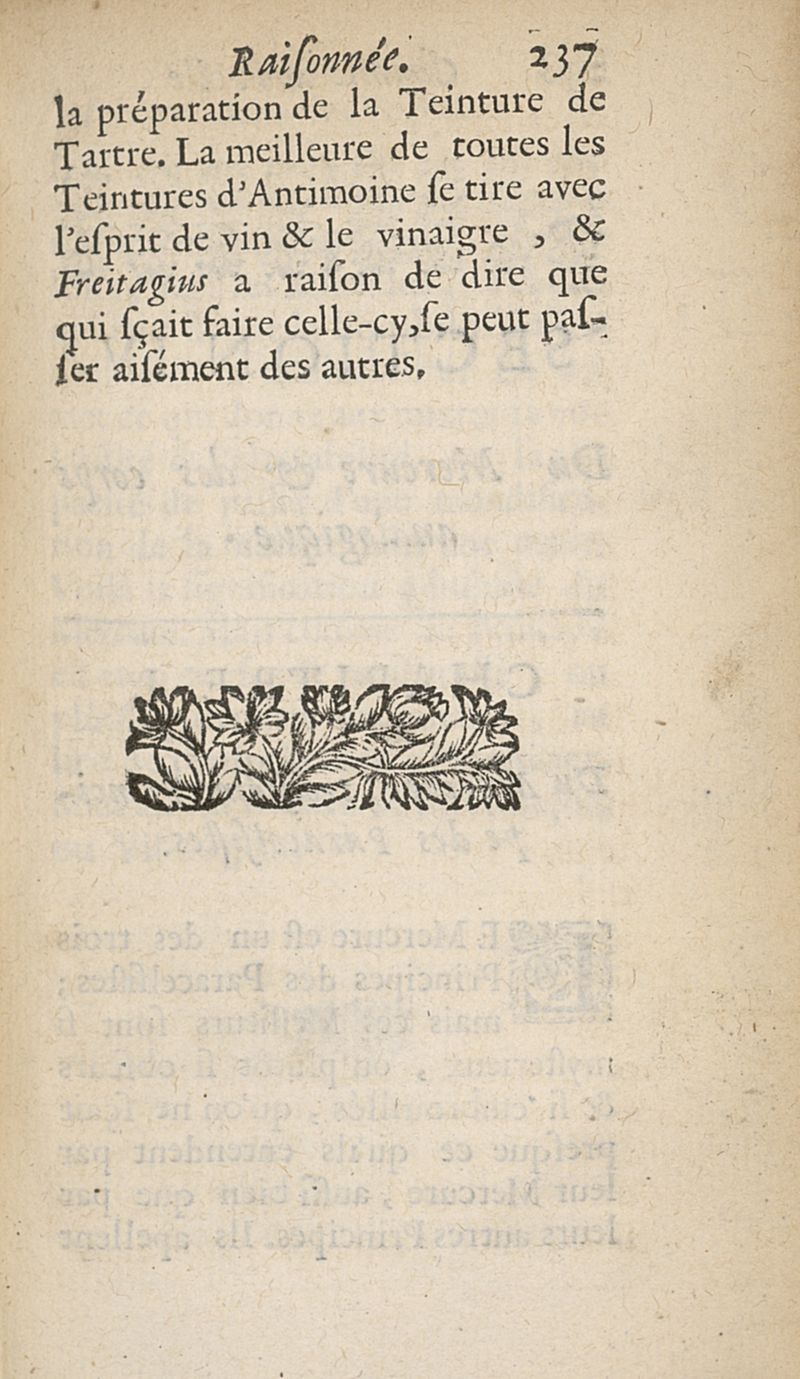 Raiſonnée. 237
la préparation de la Teinture de
Tartre. La meilleure de toutes les
Teintures d'Antimoine ſe tire avec
l'eſprit de vin & le vinaigre , &
Freitagius a raiſon de dire que
qui ſçait faire celle-cy,ſe peut paſ-
ſer aiſément des autres,